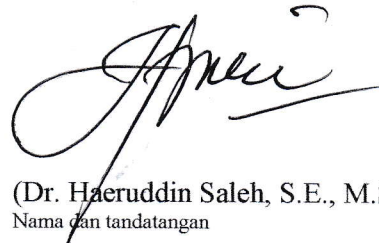 (Dr. Haeruddin Saleh, S.E., M.
Nama dan tandatangan